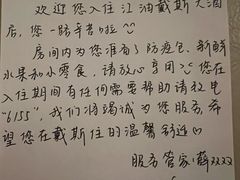 欢迎您入住江油戴斯大酒
店，您一路辛苦啦~
房间内为您准备了防疫包、新鲜
水果和小零食，请放心享用~您在
入住期间有任何需要帮助请致电
"6155"，我们将竭诚为您服务，希
望您在戴斯住的温馨舒适♡
服务管家：薛双双